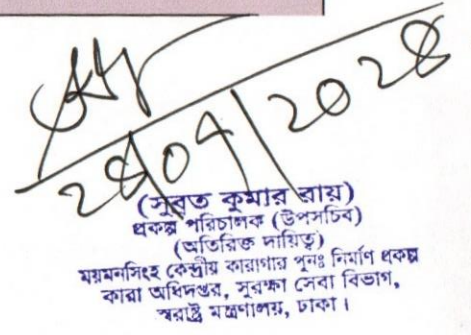 ২৪/০৭/২০২৪
(সুব্রত কুমার রায়)
প্রকল্প পরিচালক (উপসচিব)
(অতিরিক্ত দায়িত্ব)
ময়মনসিংহ কেন্দ্রীয় কারাগার পুনঃ নির্মাণ প্রকল্প
কারা অধিদপ্তর, সুরক্ষা সেবা বিভাগ,
স্বরাষ্ট্র মন্ত্রণালয়, ঢাকা।